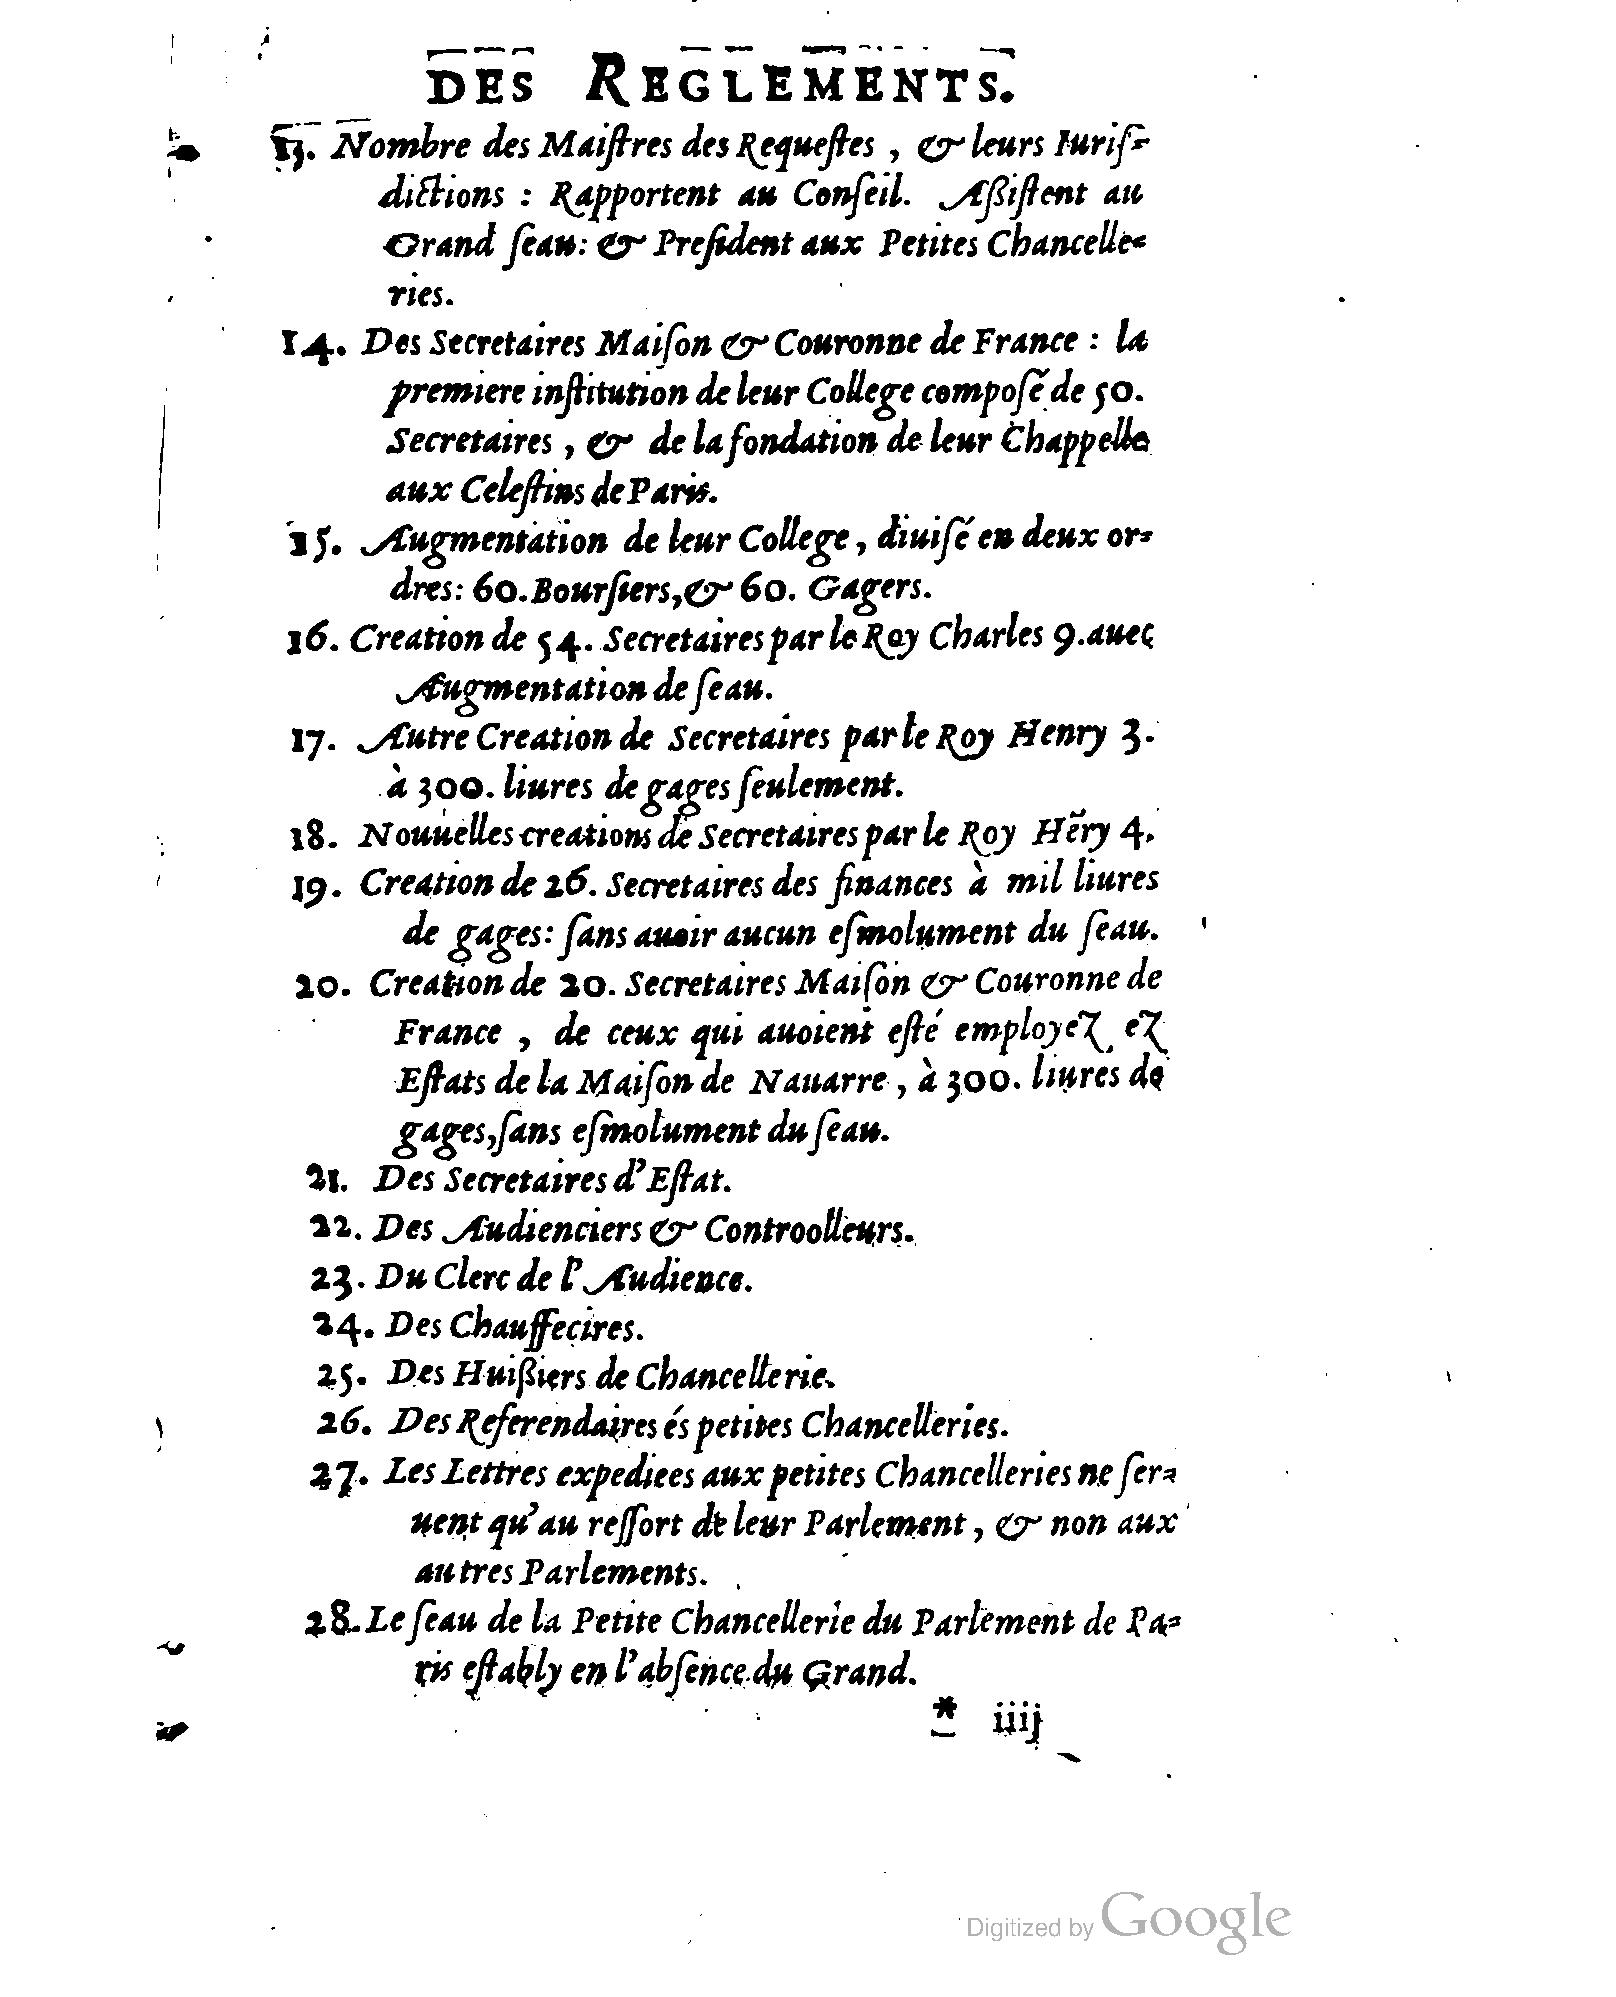 DES REGLEMENTS.
13. Nombre des Maiſtres des Requeſtes, & leurs Iuriſ-
dictions : Rapportent au Conſeil. Aßiſtent au
Grand ſeau: & Preſident aux Petites Chancelle-
ries.
14. Des Secretaires Maiſon & Couronne de France : la
premiere inſtitution de leur College compoſé de 50.
Secretaires, & de la fondation de leur Chappelle
aux Celeſtins de Paris.
15. Augmentation de leur College, diuiſé en deux or-
dres: 60. Bourſiers, & 60. Gagers.
16. Creation de 54. Secretaires par le Roy Charles 9. auec
Augmentation de ſeau.
17. Autre Creation de Secretaires par le Roy Henry 3.
à 300. liures de gages ſeulement.
18. Nouuelles creations de Secretaires par le Roy Hẽry 4.
19. Creation de 26. Secretaires des finances à mil liures
de gages: ſans auoir aucun eſmolument du ſeau.
20. Creation de 20. Secretaires Maiſon & Couronne de
France, de ceux qui auoient eſté employez ez
Eſtats de la Maiſon de Nauarre, à 300. liures de
gages, ſans eſmolument du ſeau.
21. Des Secretaires d'Eſtat.
22. Des Audienciers & Controolleurs.
23. Du Clerc de l'Audience.
24. Des Chauffecires.
25. Des Huißiers de Chancellerie.
26. Des Referendaires és petites Chancelleries.
27. Les Lettres expediees aux petites Chancelleries ne ſer-
uent qu'au reſſort de leur Parlement, & non aux
autres Parlements.
28. Le ſeau de la Petite Chancellerie du Parlement de Pa-
ris eſtably en l'abſence du Grand.
* iiij
Digitized by Google